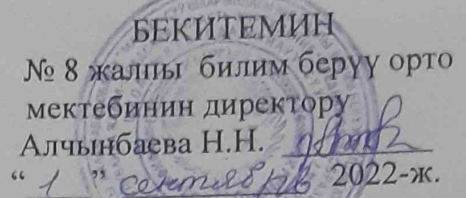 БЕКИТЕМИН
№ 8 жалпы билим берүү орто
мектебинин директору
Алчынбаева Н.Н.
“ 1 ” сентябрь 2022-ж.